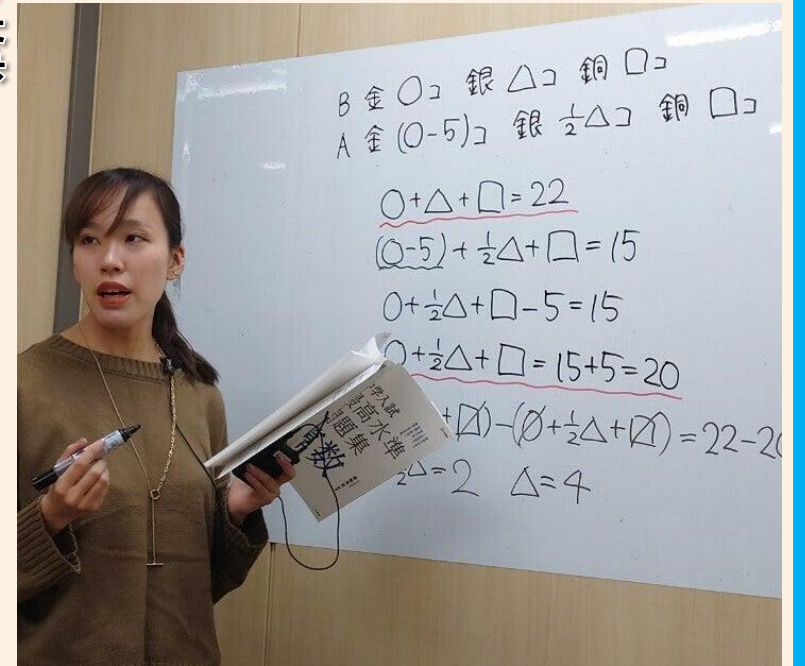 B 金 〇コ 銀 △コ 銅 □コ
A 金 (〇-5)コ 銀 ½△コ 銅 □コ
〇+△+□=22
(〇-5)+½△+□=15
〇+½△+□-5=15
〇+½△+□=15+5=20
+□)-(〇+½△+□)=22-20
½△=2 △=4
学入試
高水準
問題集
算数